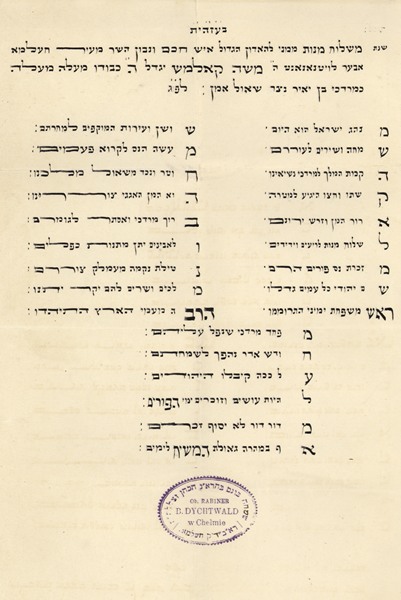 בעזהית
שנת משלוח מנות ממני להאדון הגדול איש חכם ונבון השר מעיר חעלמא
אבער לויטנאנאנט ה׳ משה קאלמש יגדל ה׳ כבודו מעלה מעלה
כמרדכי בן יאיר נצר שאול אמן : לפ״ג
מ נהג ישראל הוא היום · ש ושן ועירות המוקפים למחרתם :
ש מחה ושירים לעוררם · מ עשה הנס לקרוא פעמים :
ה קמת המלך למרדכי נשיאינו · ח וטר ונכד משאול מלכנו :
ק שתו וחצו הגיע למטרה · א יא המן האגגי צוררינו :
א רור המן וזרש ירונם · ב רוך מרדכי ואסתר לגומרם :
ל שלוח מנות לרעים וידידים · ו לאביונים יתן מתנות כפלים :
מ זכרת נס פורים הרב · נ טילת נקמה מעמלק צוררם :
ש ם יהודי כל עמים גדלו · מ לכים ושרים להם יקר יתנו :
ראש משפחת ימיני התרוממו · הרב ה כועבי הארץ התיהדו :
מ פחד מרדכי שנפל עליהם ·
ח ודש אדר נהפך לשמחתם :
ע ל ככה קיבלו היהודים ·
ל היות עושים וזוכרים ימי הפורים :
מ דור דור לא יסוף זכרם ·
א ף במהרה גאולת המשיח לימים :
OB. RABINER
B. DYCHTWALD
w Chełmie